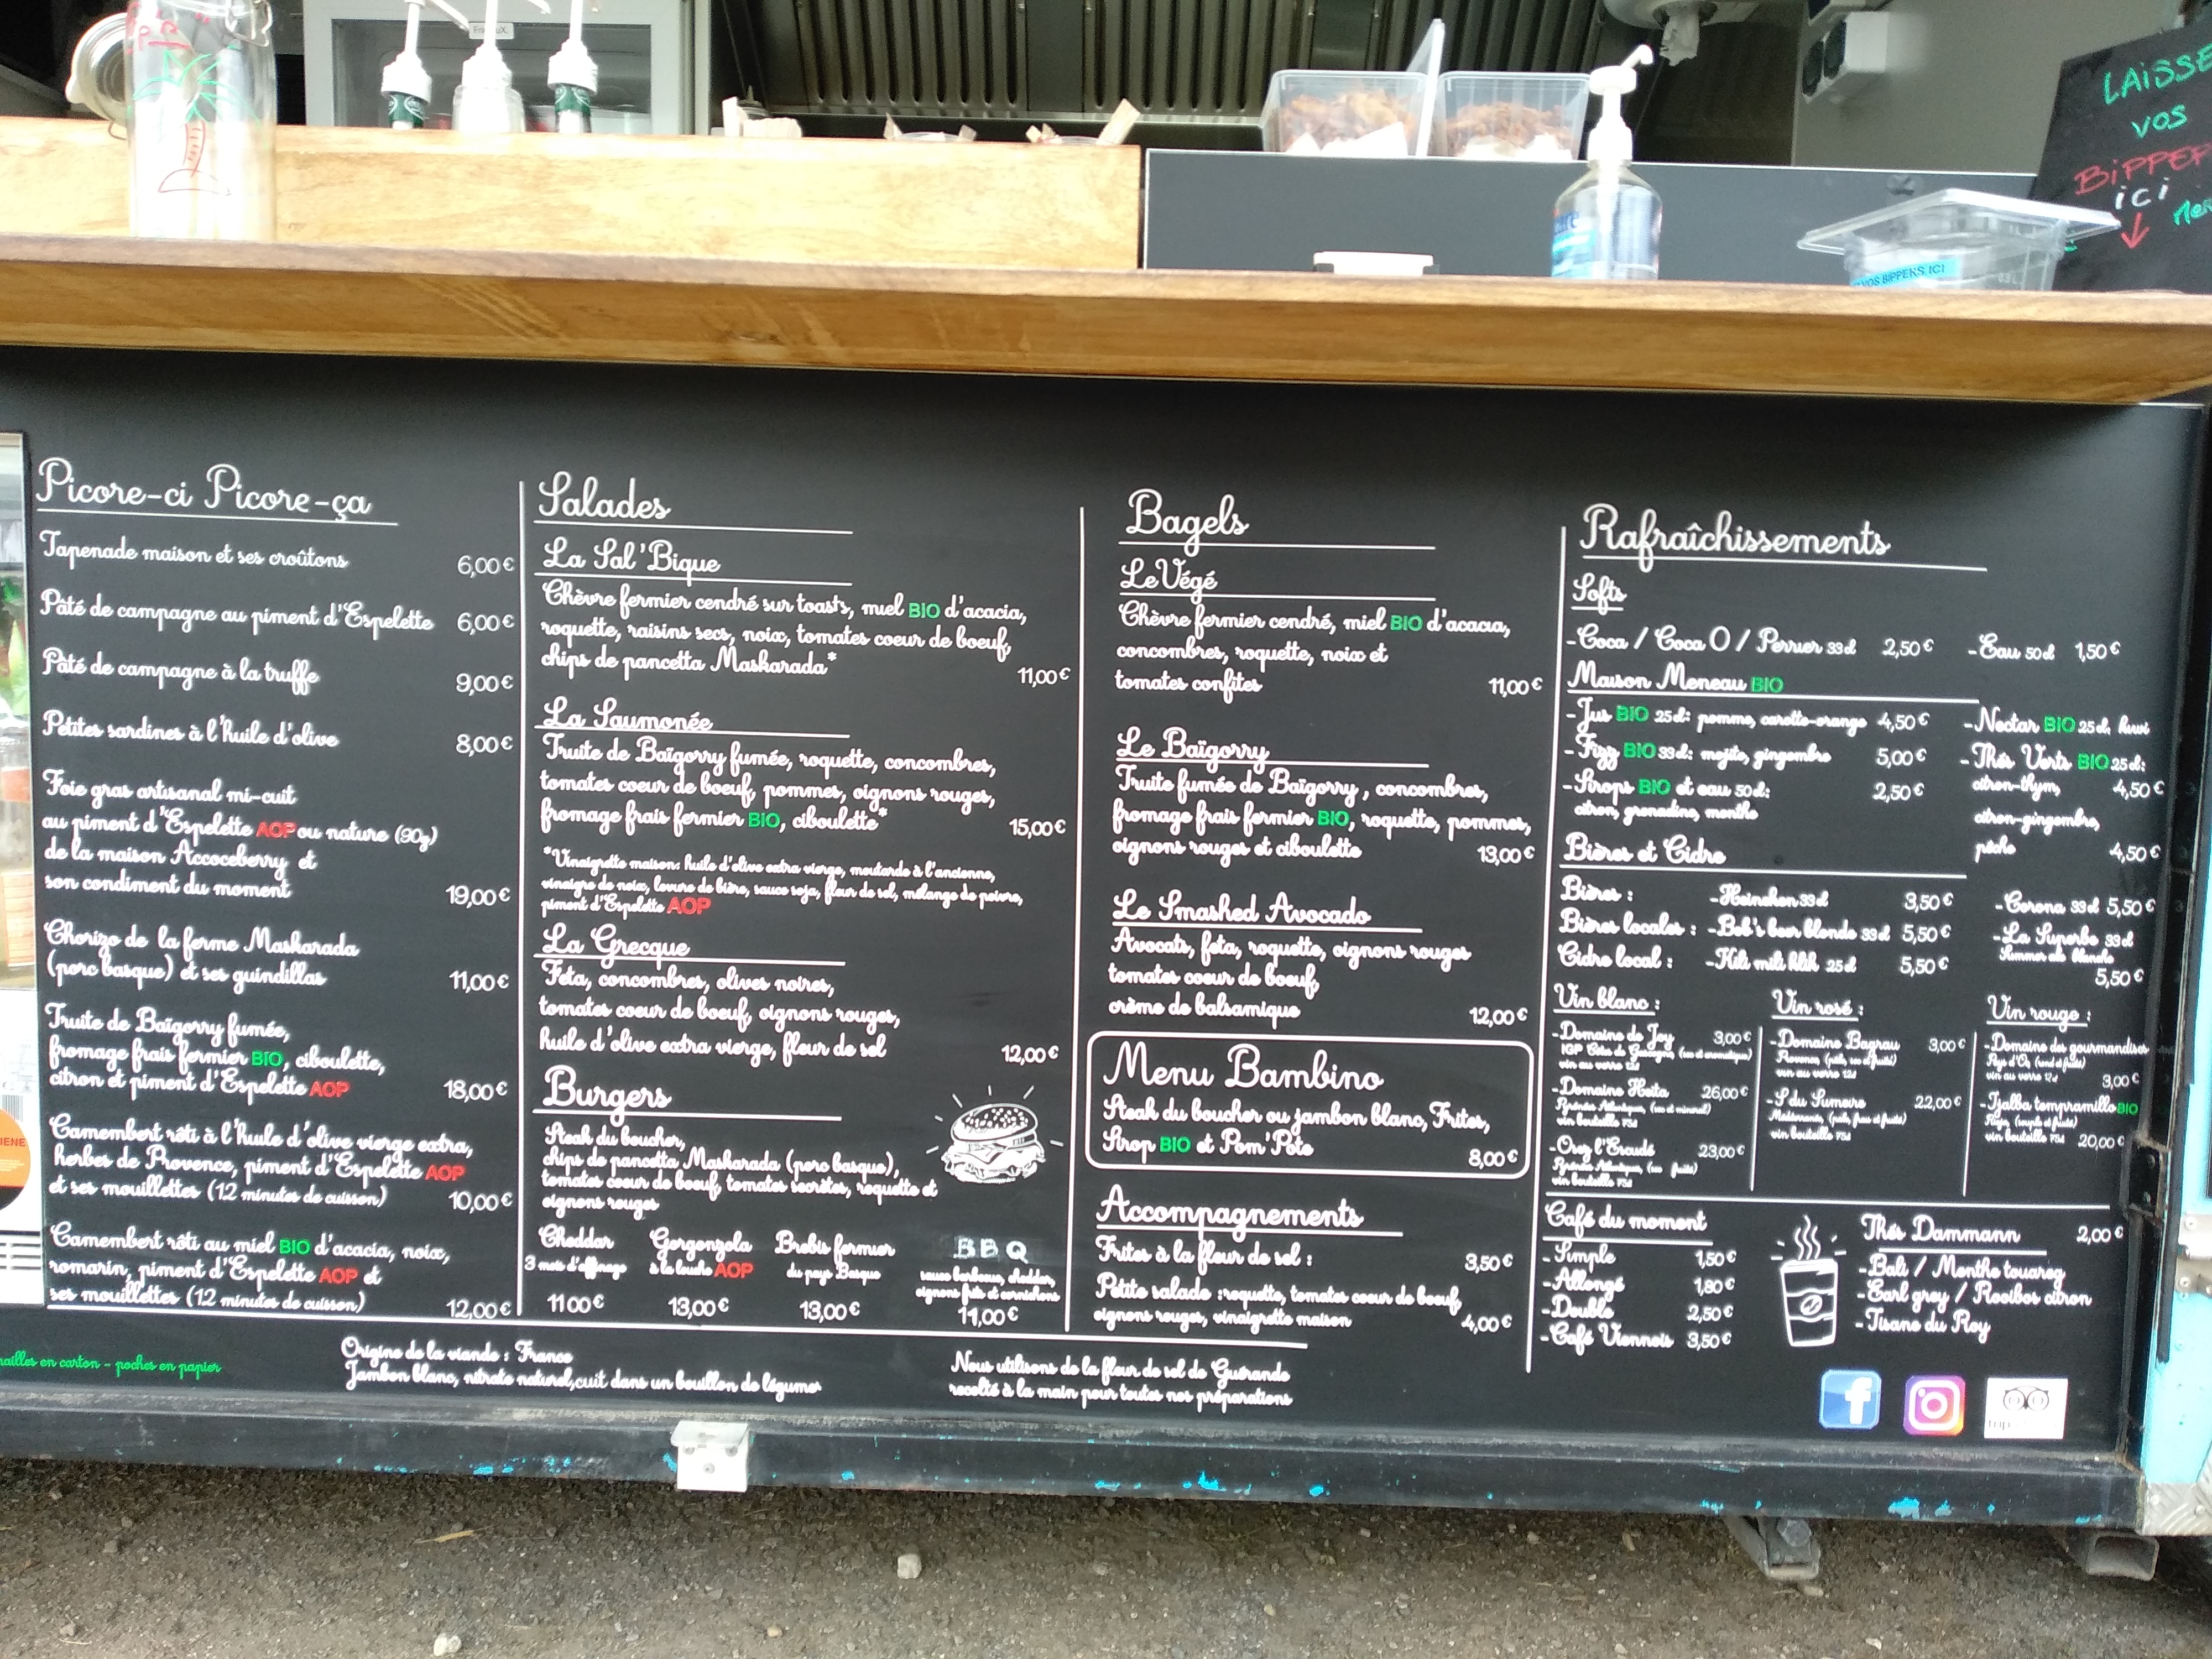 LAISSE
VOS
BIPPER
ici
VOS BIPPERS ICI
Picore-ci Picore-ça
Tapenade maison et ses croûtons 6,00 €
Pâté de campagne au piment d'Espelette 6,00 €
Pâté de campagne à la truffe 9,00 €
Petites sardines à l'huile d'olive 8,00 €
Foie gras artisanal mi-cuit
au piment d'Espelette AOP ou nature (90g)
de la maison Accoceberry et
son condiment du moment 19,00 €
Chorizo de la ferme Maskarada
(porc basque) et ses guindillas 11,00 €
Truite de Baïgorry fumée,
fromage frais fermier BIO, ciboulette,
citron et piment d'Espelette AOP 18,00 €
Camembert rôti à l'huile d'olive vierge extra,
herbes de Provence, piment d'Espelette AOP
et ses mouillettes (12 minutes de cuisson) 10,00 €
Camembert rôti au miel BIO d'acacia, noix,
romarin, piment d'Espelette AOP et
ses mouillettes (12 minutes de cuisson) 12,00 €
Salades
La Sal'Bique
Chèvre fermier cendré sur toasts, miel BIO d'acacia,
roquette, raisins secs, noix, tomates coeur de boeuf,
chips de pancetta Maskarada* 11,00 €
La Saumonée
Truite de Baïgorry fumée, roquette, concombres,
tomates coeur de boeuf, pommes, oignons rouges,
fromage frais fermier BIO, ciboulette* 15,00 €
*Vinaigrette maison: huile d'olive extra vierge, moutarde à l'ancienne,
vinaigre de noix, levure de bière, sauce soja, fleur de sel, mélange de poivre,
piment d'Espelette AOP
La Grecque
Feta, concombres, olives noires,
tomates coeur de boeuf, oignons rouges,
huile d'olive extra vierge, fleur de sel 12,00 €
Burgers
Steak du boucher,
chips de pancetta Maskarada (porc basque),
tomates coeur de boeuf, tomates secrètes, roquette et
oignons rouges
Cheddar Gorgonzola Brebis fermier BBQ
3 mois d'affinage à la louche AOP du pays Basque sauce barbecue, cheddar,
oignons frits et cornichons
11 00 € 13,00 € 13,00 € 11,00 €
Bagels
Le Végé
Chèvre fermier cendré, miel BIO d'acacia,
concombres, roquette, noix et
tomates confites 11,00 €
Le Baïgorry
Truite fumée de Baïgorry, concombres,
fromage frais fermier BIO, roquette, pommes,
oignons rouges et ciboulette 13,00 €
Le Smashed Avocado
Avocats, feta, roquette, oignons rouges
tomates coeur de boeuf,
crème de balsamique 12,00 €
Menu Bambino
Steak du boucher ou jambon blanc, Frites,
Sirop BIO et Pom'Pote 8,00 €
Accompagnements
Frites à la fleur de sel : 3,50 €
Petite salade : roquette, tomates coeur de boeuf,
oignons rouges, vinaigrette maison 4,00 €
Rafraîchissements
Softs
-Coca / Coca O / Perrier 33cl 2,50 € -Eau 50cl 1,50 €
Maison Meneau BIO
-Jus BIO 25cl: pomme, carotte-orange 4,50 € -Nectar BIO 25cl: kiwi
-Fizz BIO 33cl: mojito, gingembre 5,00 € -Thés Verts BIO 25cl:
-Sirops BIO et eau 50cl: 2,50 € citron-thym, 4,50 €
citron, grenadine, menthe citron-gingembre,
pêche 4,50 €
Bières et Cidre
Bières : -Heineken 33cl 3,50 € -Corona 33cl 5,50 €
Bières locales : -Bob's beer blonde 33cl 5,50 € -La Superbe 33cl
Summer ale blanche
Cidre local : -Kili mili klik 25cl 5,50 € 5,50 €
Vin blanc :
-Domaine de Joy 3,00 €
IGP Côtes de Gascogne, (sec et aromatique)
vin au verre 12cl
-Domaine Heita 26,00 €
Pyrénées Atlantiques, (sec et minéral)
vin bouteille 75cl
23,00 €
Pyrénées Atlantiques,
vin bouteille 75cl
Vin rosé :
-Domaine Bagrau 3,00 €
Provence, (pâle, sec et fruité)
vin au verre 12cl
-S du Sumeire 22,00 €
vin bouteille 75cl
Vin rouge :
-Domaine des gourmandises
Pays d'Oc, (rond et fruité)
vin au verre 12cl 3,00 €
-Ijalba tempramillo BIO
Rioja, (souple et fruité)
vin bouteille 75cl 20,00 €
Café du moment
-Simple 1,50 €
-Allongé 1,80 €
-Double 2,50 €
-Café Viennois 3,50 €
Thés Dammann 2,00 €
-Bali / Menthe touareg
-Earl grey / Rooibos citron
-Tisane du Roy
en carton - poches en papier
Origine de la viande : France
Jambon blanc, nitrate naturel, cuit dans un bouillon de légumes
Nous utilisons de la fleur de sel de Guérande
recolté à la main pour toutes nos préparations